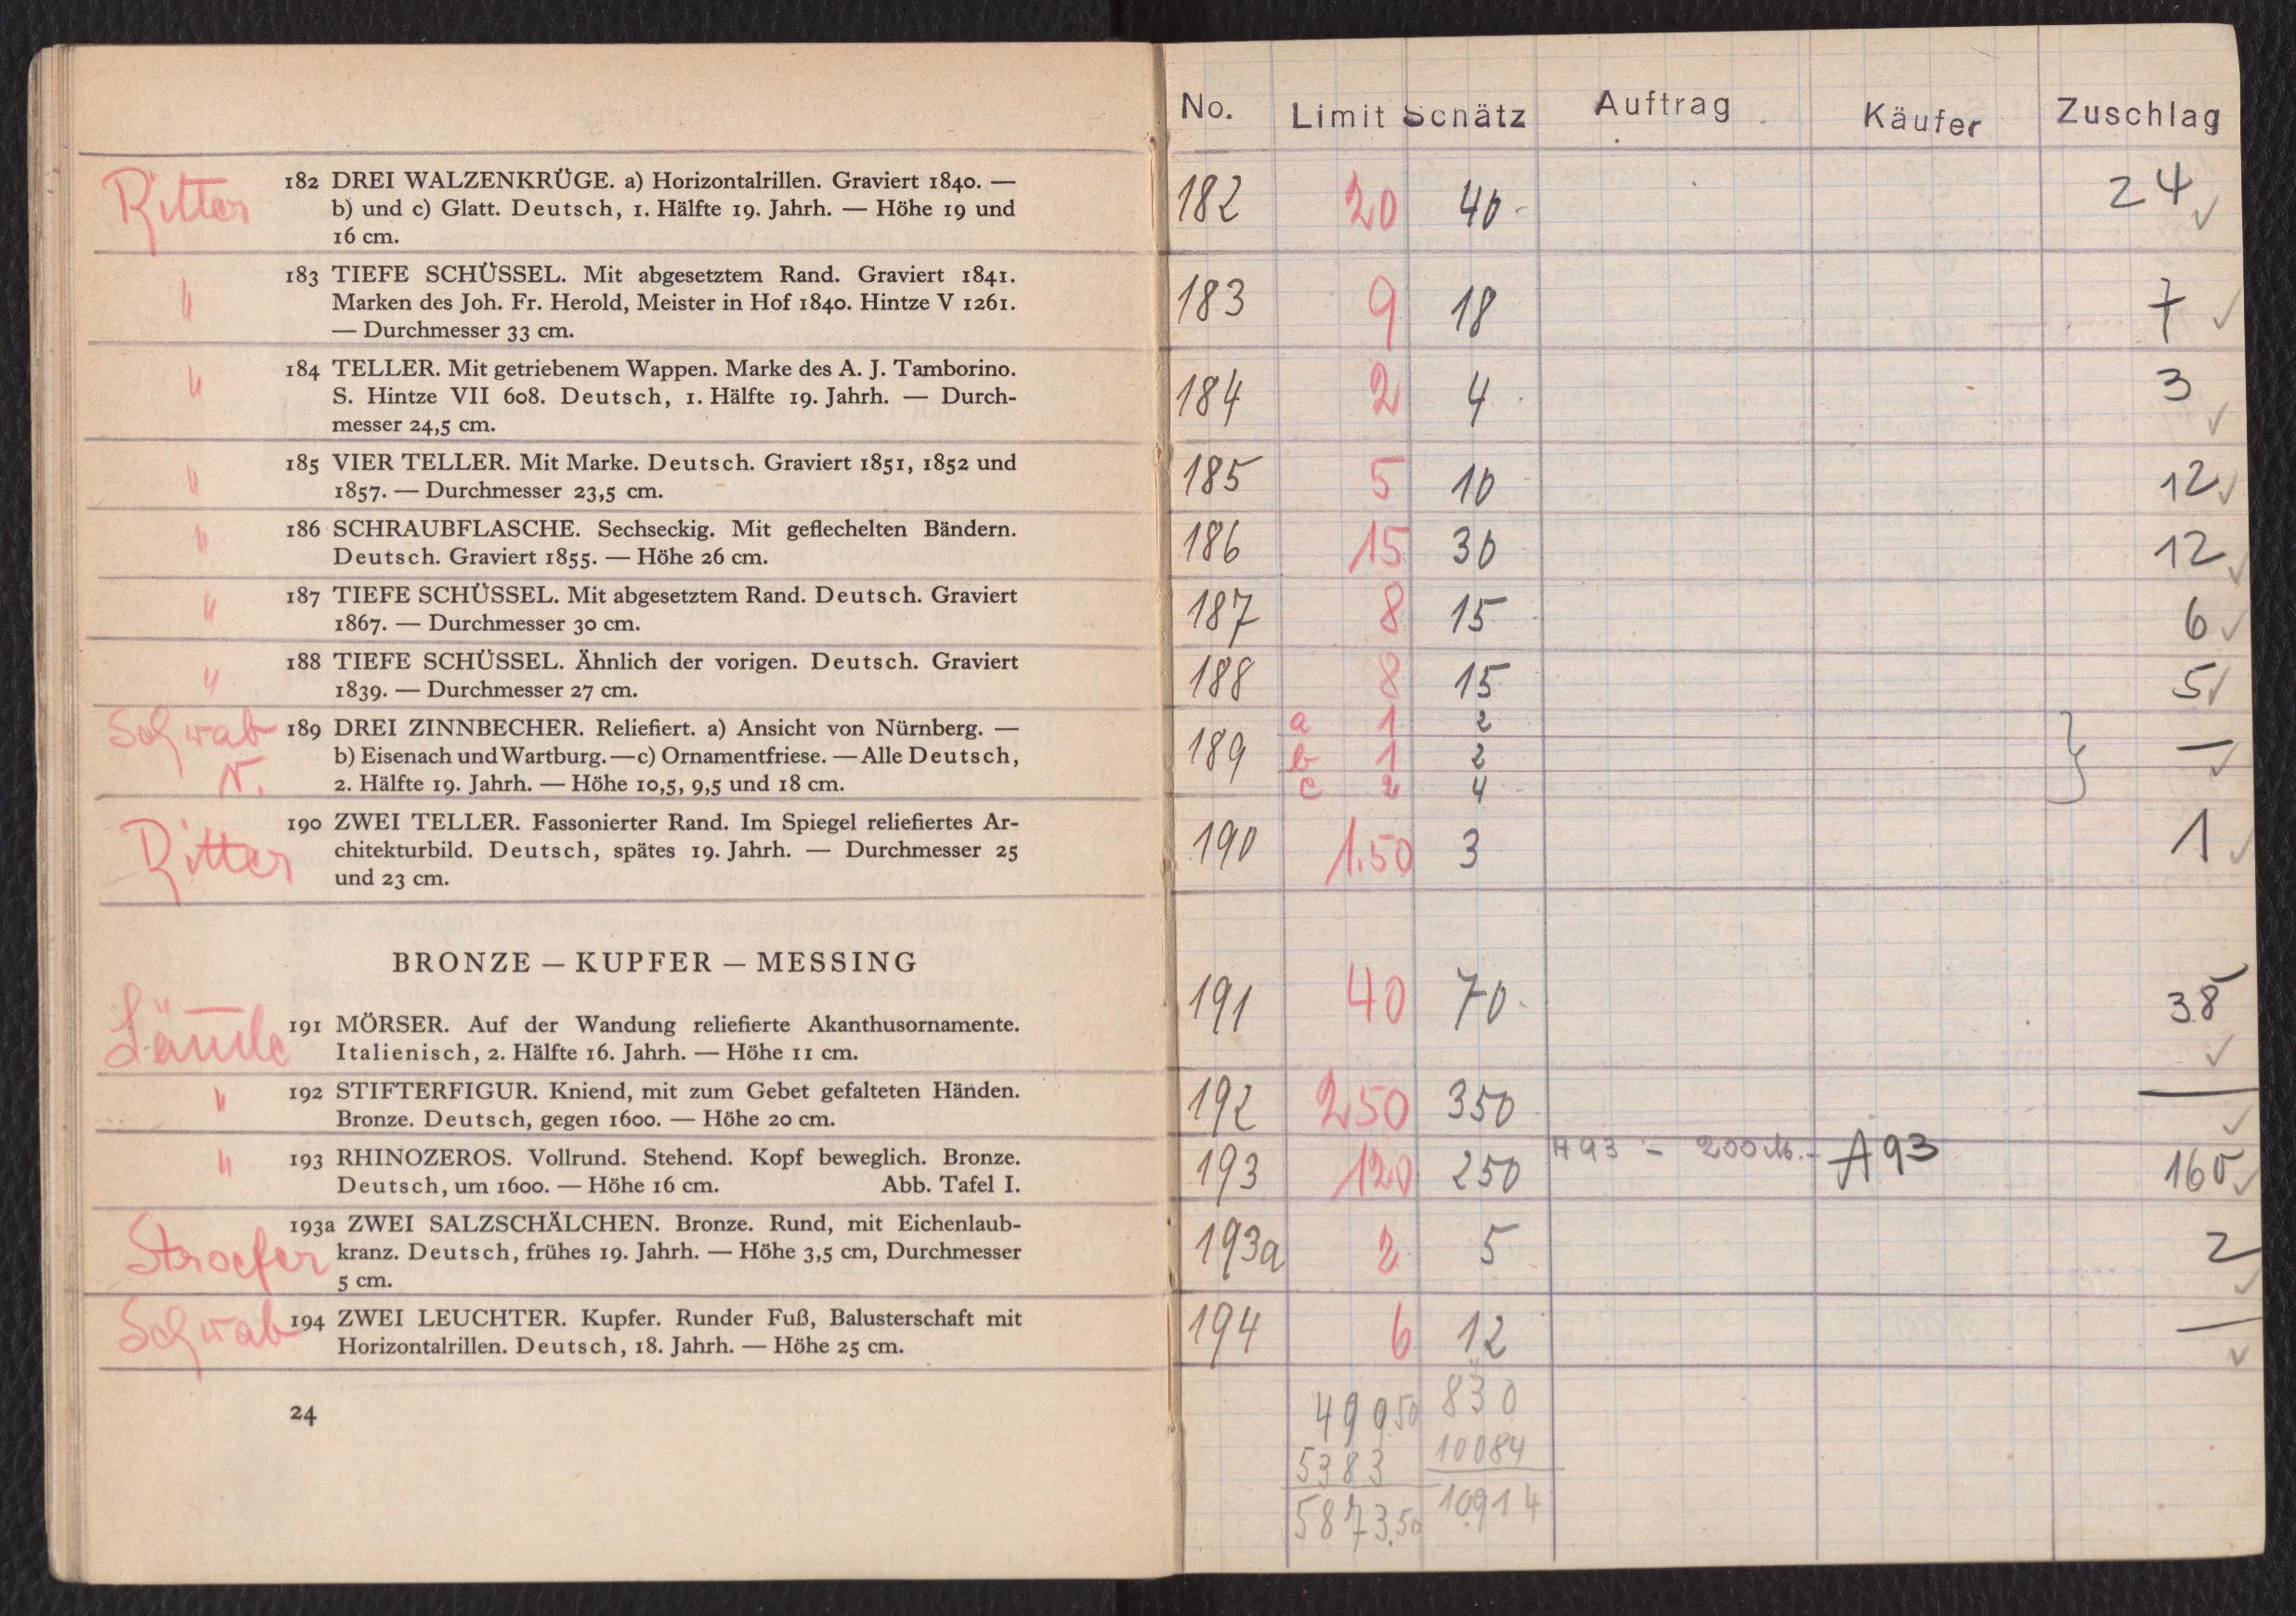 Ritter
182 DREI WALZENKRÜGE. a) Horizontalrillen. Graviert 1840. —
b) und c) Glatt. Deutsch, 1. Hälfte 19. Jahrh. — Höhe 19 und
16 cm.
" 183 TIEFE SCHÜSSEL. Mit abgesetztem Rand. Graviert 1841.
Marken des Joh. Fr. Herold, Meister in Hof 1840. Hintze V 1261.
— Durchmesser 33 cm.
" 184 TELLER. Mit getriebenem Wappen. Marke des A. J. Tamborino.
S. Hintze VII 608. Deutsch, 1. Hälfte 19. Jahrh. — Durch-
messer 24,5 cm.
" 185 VIER TELLER. Mit Marke. Deutsch. Graviert 1851, 1852 und
1857. — Durchmesser 23,5 cm.
" 186 SCHRAUBFLASCHE. Sechseckig. Mit geflechelten Bändern.
Deutsch. Graviert 1855. — Höhe 26 cm.
" 187 TIEFE SCHÜSSEL. Mit abgesetztem Rand. Deutsch. Graviert
1867. — Durchmesser 30 cm.
" 188 TIEFE SCHÜSSEL. Ähnlich der vorigen. Deutsch. Graviert
1839. — Durchmesser 27 cm.
Schwab
N.
189 DREI ZINNBECHER. Reliefiert. a) Ansicht von Nürnberg. —
b) Eisenach und Wartburg. — c) Ornamentfriese. — Alle Deutsch,
2. Hälfte 19. Jahrh. — Höhe 10,5, 9,5 und 18 cm.
Ritter
190 ZWEI TELLER. Fassonierter Rand. Im Spiegel reliefiertes Ar-
chitekturbild. Deutsch, spätes 19. Jahrh. — Durchmesser 25
und 23 cm.
BRONZE — KUPFER — MESSING
191 MÖRSER. Auf der Wandung reliefierte Akanthusornamente.
Italienisch, 2. Hälfte 16. Jahrh. — Höhe 11 cm.
" 192 STIFTERFIGUR. Kniend, mit zum Gebet gefalteten Händen.
Bronze. Deutsch, gegen 1600. — Höhe 20 cm.
" 193 RHINOZEROS. Vollrund. Stehend. Kopf beweglich. Bronze.
Deutsch, um 1600. — Höhe 16 cm. Abb. Tafel I.
Stroefer
193a ZWEI SALZSCHÄLCHEN. Bronze. Rund, mit Eichenlaub-
kranz. Deutsch, frühes 19. Jahrh. — Höhe 3,5 cm, Durchmesser
5 cm.
Schwab
194 ZWEI LEUCHTER. Kupfer. Runder Fuß, Balusterschaft mit
Horizontalrillen. Deutsch, 18. Jahrh. — Höhe 25 cm.
24
No. Limit Schätz Auftrag Käufer Zuschlag
182 20 40 24 ✓
183 9 18 7 ✓
184 2 4 3 ✓
185 5 10 12 ✓
186 15 30 12 ✓
187 8 15 6 ✓
188 8 15 5 ✓
189 a 1 2
b 1 2 — ✓
c 2 4
190 1.50 3 1 ✓
191 40 70 38 ✓
192 250 350 — ✓
193 120 250 A93 – 200 M.– A93 160 ✓
193a 2 5 2 ✓
194 6 12 — ✓
490.50 830
5383 10084
5873.50 10914